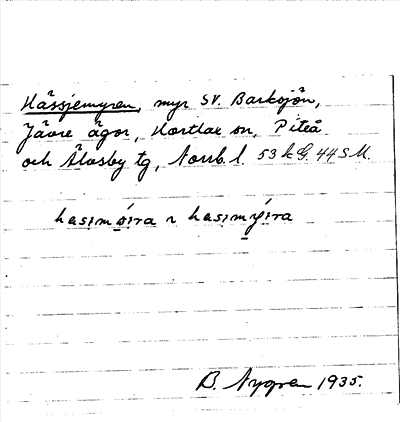 Hässjemyren, myr SV. Barksjön,
Jävre ägor, Hortlax sn, Piteå
och Älvsby tg, Norrb. l. 53 k G. 44 S M.
hasımọ́ıra ~ hasımýıra
B. Nygren 1935.